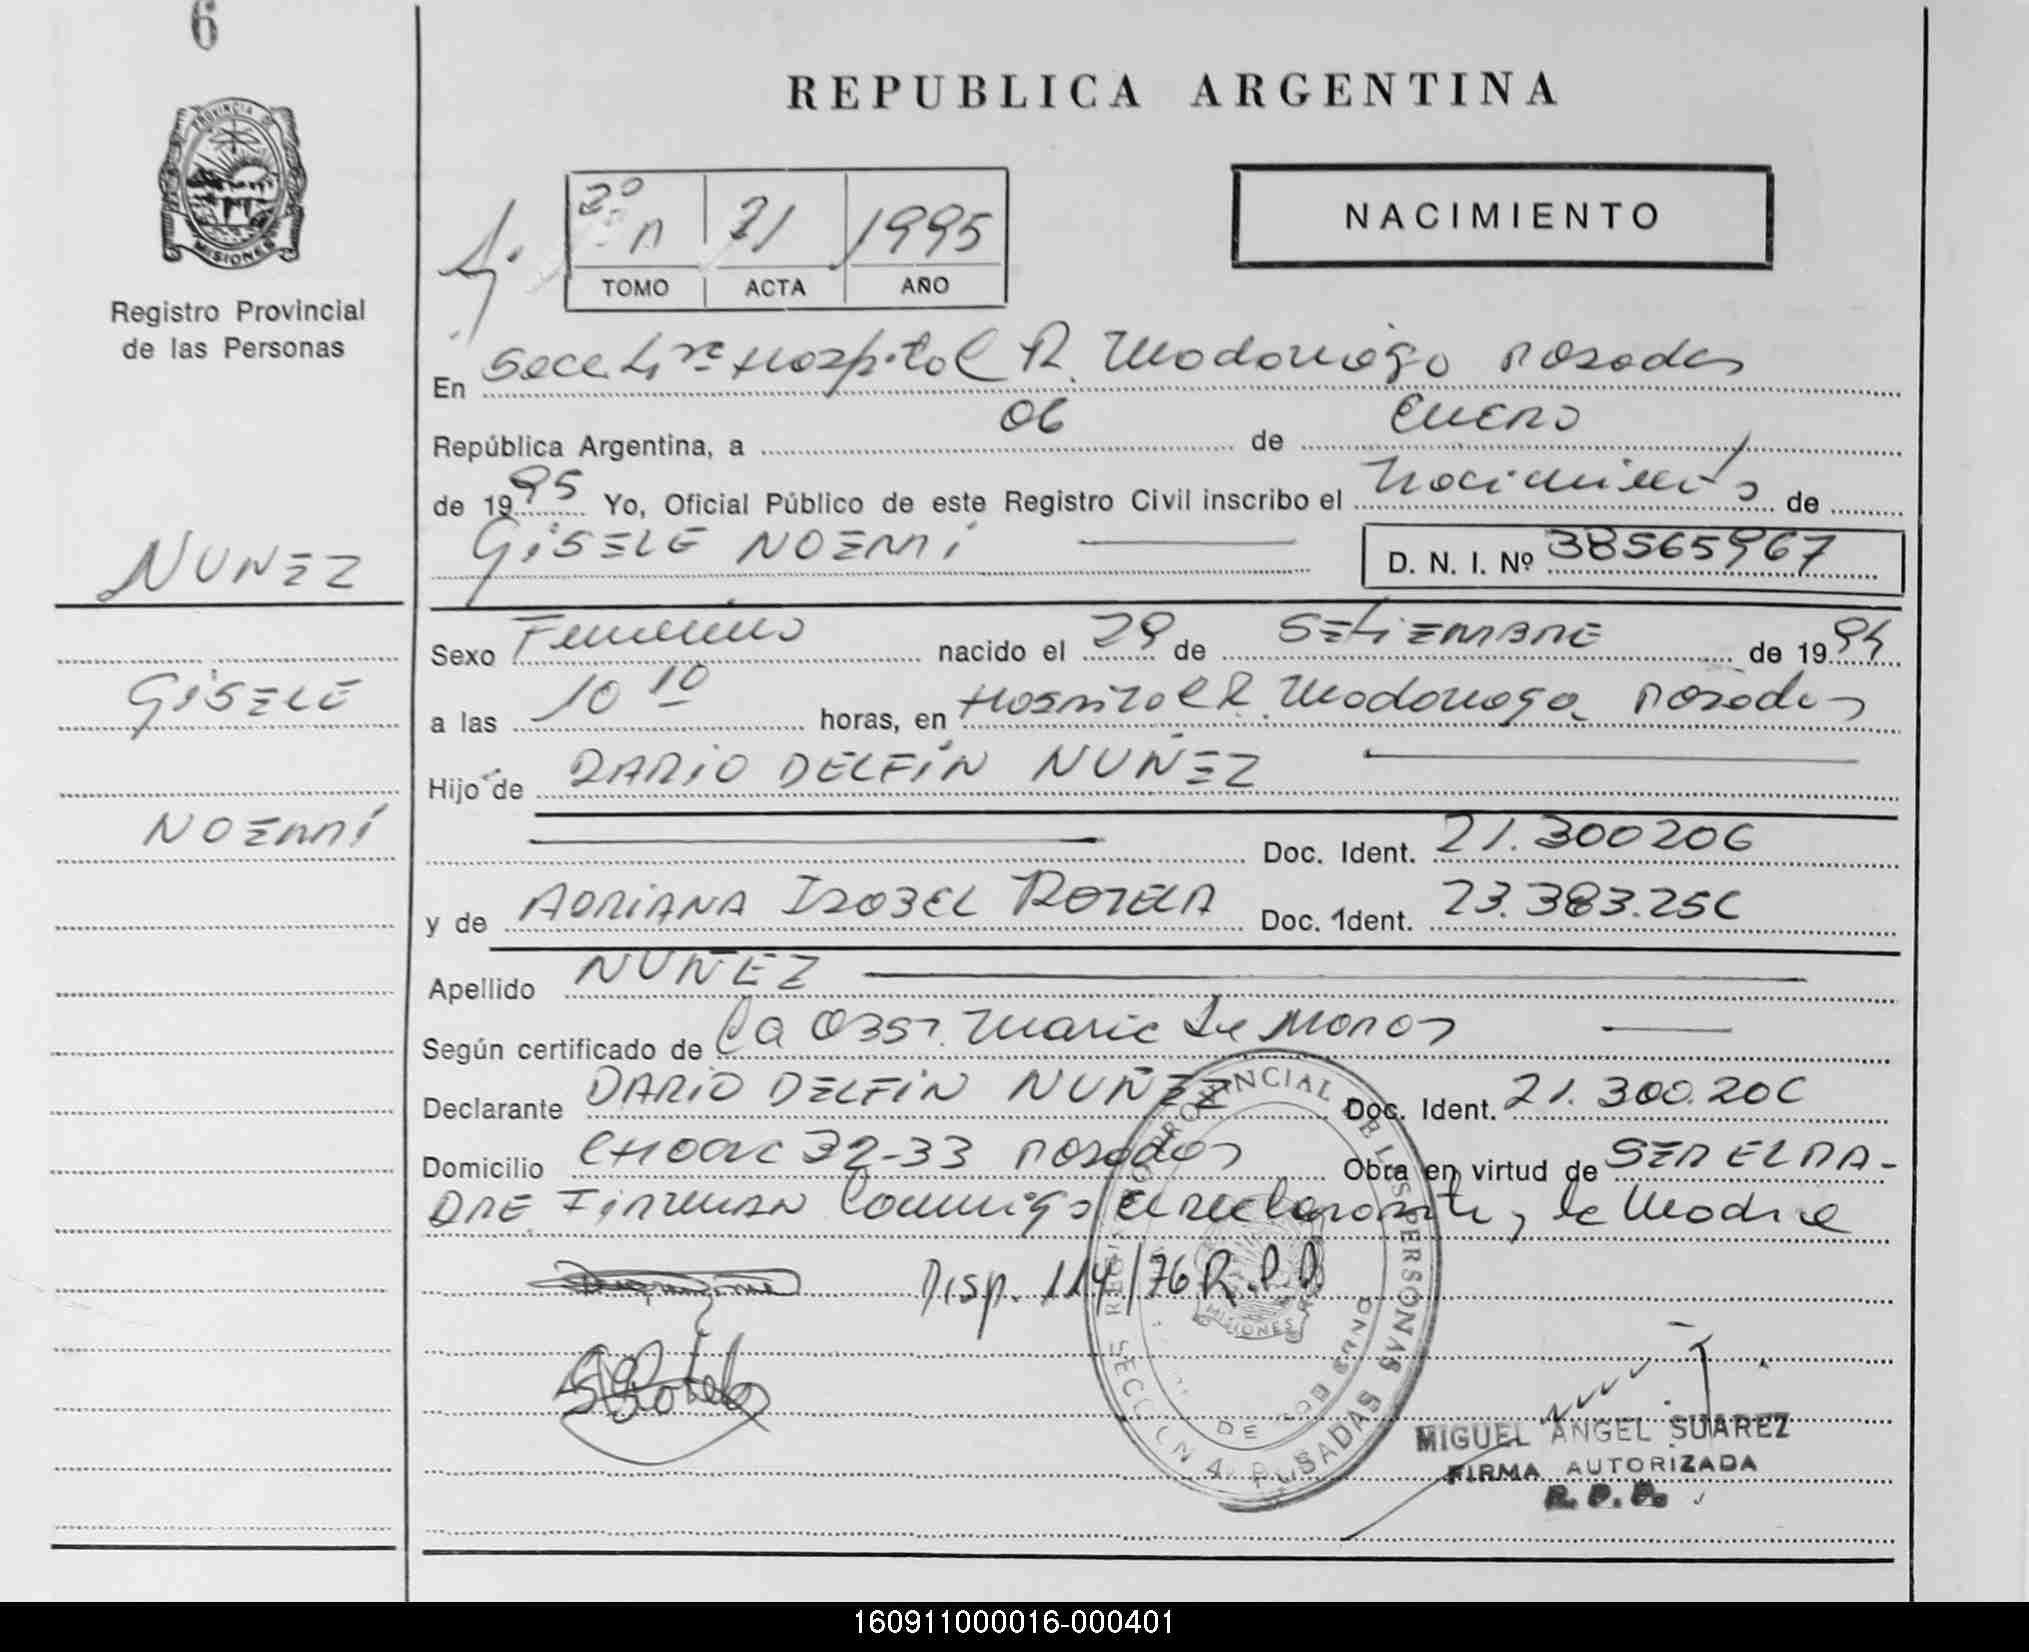 6
REPUBLICA ARGENTINA
PROVINCIA DE
MISIONES
Registro Provincial
de las Personas
2º 71 1995
TOMO ACTA AÑO
NACIMIENTO
En Secc 4 Hospital R. Madariaga Posadas
República Argentina, a 06 de Enero
de 1995 Yo, Oficial Público de este Registro Civil inscribo el Nacimiento de
GISELE NOEMI D. N. I. Nº 38565967
NUÑEZ
Sexo Femenino nacido el 29 de SETIEMBRE de 1994
GISELE
a las 10 10 horas, en Hospital R. Madariaga Posadas
Hijo de DARIO DELFIN NUÑEZ
NOEMI
Doc. Ident. 21.300206
y de ADRIANA ISABEL ROTELA Doc. Ident. 23.383.256
Apellido NUÑEZ
Según certificado de La Obst. Maria de Moros
Declarante DARIO DELFIN NUÑEZ Doc. Ident. 21.300.206
Domicilio 32-33 Posadas Obra en virtud de SER EL PA-
DRE Firman Conmigo el declarante y la Madre
Disp. 114/76 R.P.P.
REGISTRO PROVINCIAL DE LAS PERSONAS
MISIONES
POSADAS
MIGUEL ANGEL SUAREZ
FIRMA AUTORIZADA
R. P. P.
160911000016-000401